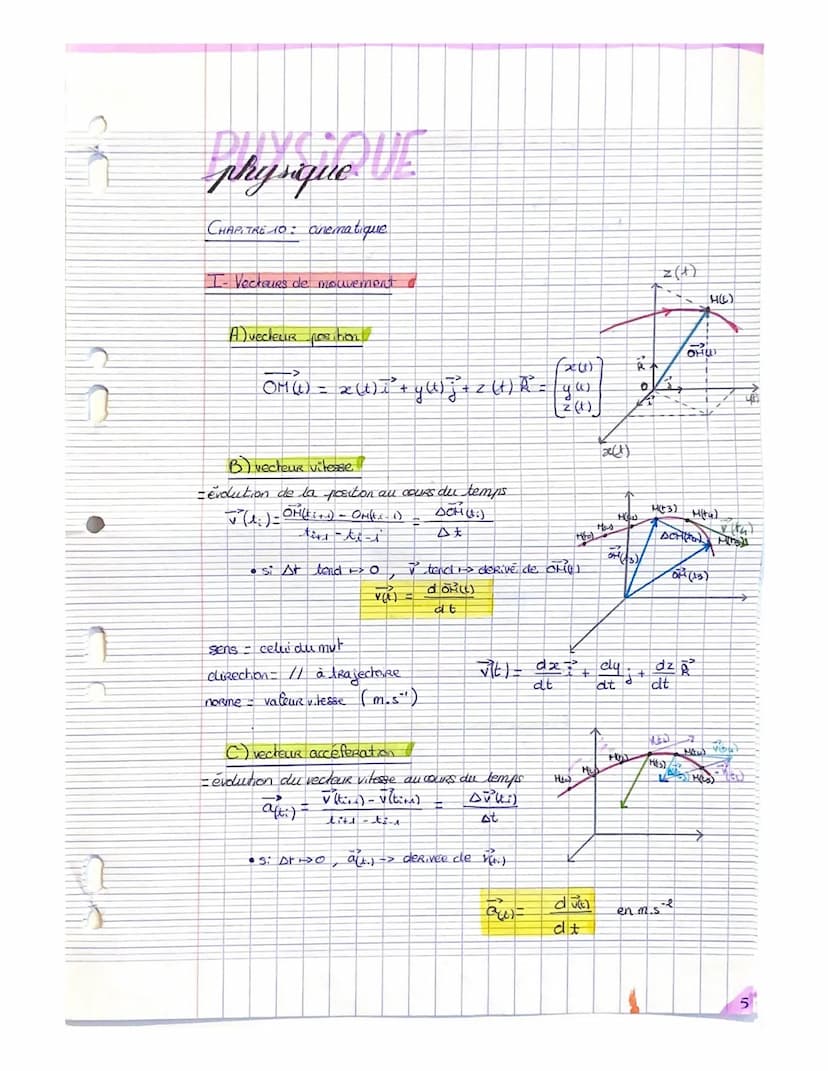 PHYSIQUE
physique
CHAPITRE 10 : cinematique
I- Vecteurs de mouvement
A) vecteur position
OM(t) = x(t) i + y(t) j + z(t) k = ( x(t) y(t) z(t) )
z(t)
M(t)
OM(t)
k
O
j
i
y(t)
x(t)
B) vecteur vitesse
= évolution de la position au cours du temps
v(ti) = OM(ti+1) - OM(ti-1) / ti+1 - ti-1 = ΔOM(ti) / Δt
• si Δt tend ↦ 0 , v tend ↦ derivé de OM(t)
v(t) = d OM(t) / dt
M(t3)
M(t4)
v(t4)
ΔOM(t4)
OM(t3)
OM(t5)
M(t5)
sens = celui du mvt
direction = // à trajectoire
norme = valeur vitesse (m.s⁻¹)
v(t) = dx/dt i + dy/dt j + dz/dt k
C) vecteur accéleration
= évolution du vecteur vitesse au cours du temps
a(ti) = v(ti+1) - v(ti-1) / ti+1 - ti-1 = Δv(ti) / Δt
• si Δt ↦ 0 , a(t.) -> derivée de v(t.)
a(t) = d v(t) / dt en m.s⁻²
5